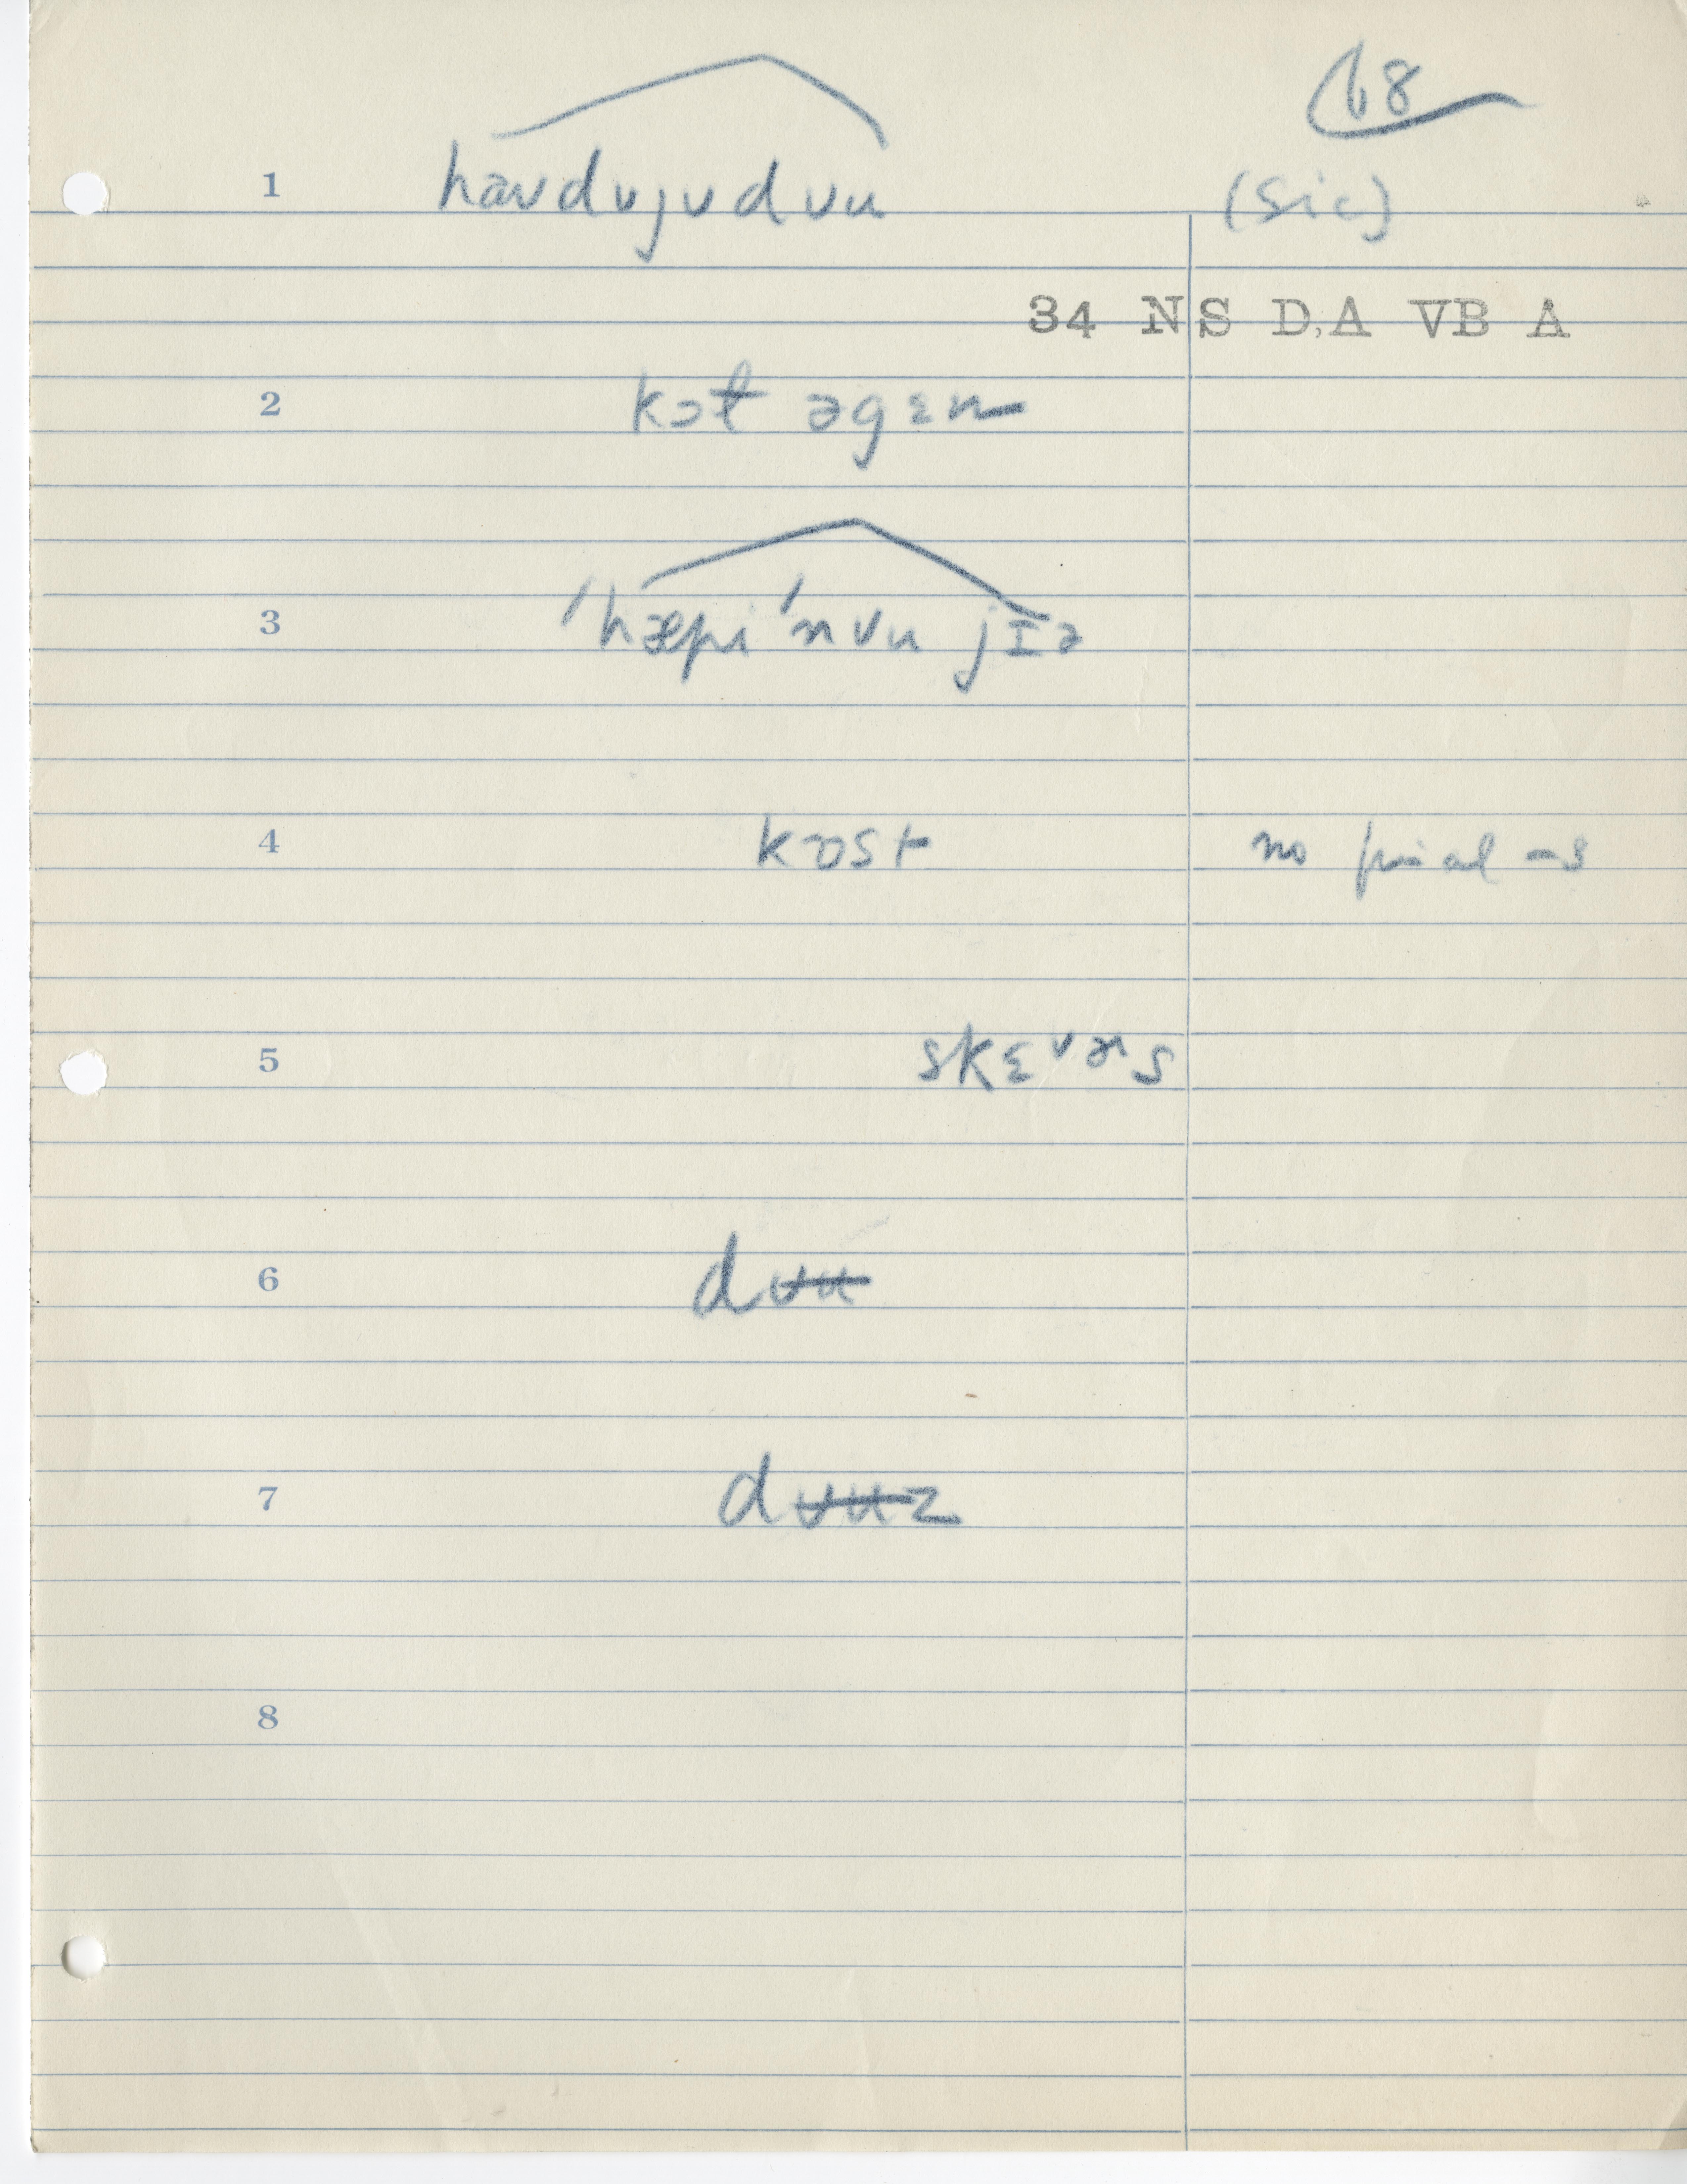 68
1 haʊdʊjʊdʊu (sic)
34 NS D,A VB A
2 kɔt əgɛn
3 'hæpi 'nʊu jɪə
4 kɒst no final -s
5 skɛʊəns
6 dʊu
7 dʊuz
8